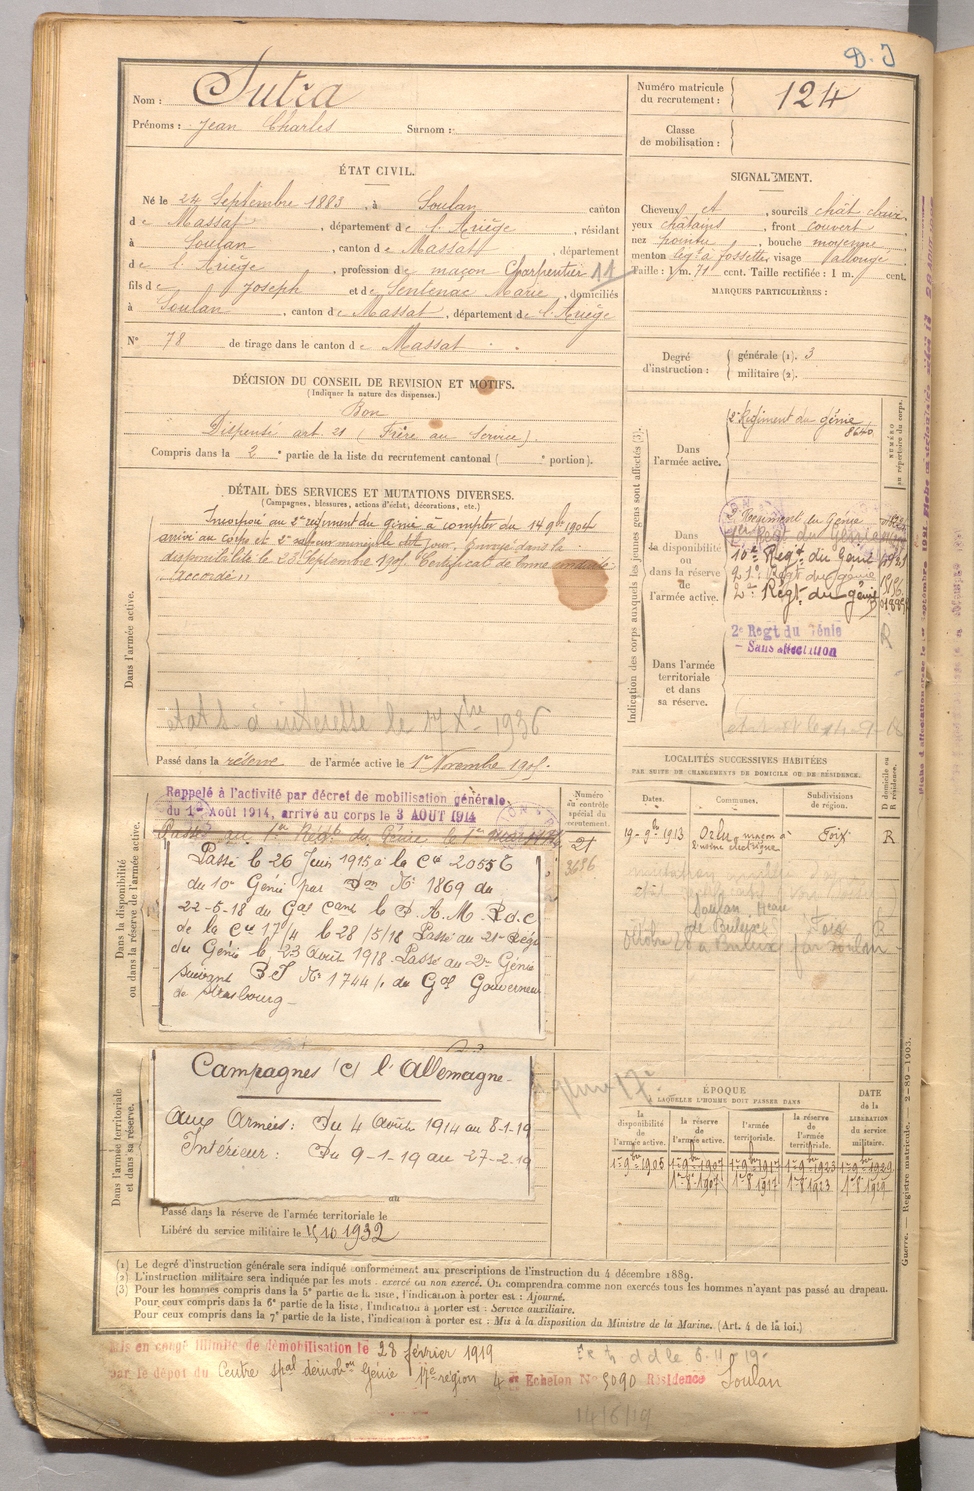 D. J
Nom : Sutra
Prénoms : Jean Charles Surnom :
Numéro matricule du recrutement : 124
Classe de mobilisation :
ÉTAT CIVIL.
Né le 24 Septembre 1883, à Soulan canton
de Massat, département de l'Ariège, résidant
à Soulan, canton de Massat, département
de l'Ariège, profession de maçon Charpentier 11
fils de Joseph et de Sentenac Marie, domiciliés
à Soulan, canton de Massat, département de l'Ariège
N° 78 de tirage dans le canton de Massat
SIGNALEMENT.
Cheveux et, sourcils chât clair,
yeux châtains, front couvert
nez pointu, bouche moyenne
menton à fossette, visage allongé
Taille : 1 m. 71 cent. Taille rectifiée : 1 m. cent.
MARQUES PARTICULIÈRES :
Degré d'instruction : générale (1). 3
militaire (2).
DÉCISION DU CONSEIL DE REVISION ET MOTIFS.
(Indiquer la nature des dispenses.)
Bon
Dispensé art. 21 (Frère au Service).
Compris dans la 2e partie de la liste du recrutement cantonal ( e portion).
DÉTAIL DES SERVICES ET MUTATIONS DIVERSES.
(Campagnes, blessures, actions d'éclat, décorations, etc.)
Dans l'armée active.
Incorporé au 2e régiment du génie à compter du 14 9bre 1904
arrivé au corps et 2e sapeur mineur le dit jour. Envoyé dans la
disponibilité le 23 Septembre 1905 Certificat de bonne conduite
"accordé"
1936
Passé dans la réserve de l'armée active le 1er Novembre 1905.
Indication des corps auxquels les jeunes gens sont affectés (3).
NUMÉRO au répertoire du corps.
Dans l'armée active.
2e Régiment du génie
8640
Dans la disponibilité ou dans la réserve de l'armée active.
Régiment du Génie
10e Régt. du Génie
21e Régt du génie
2e Régt. du génie
Dans l'armée territoriale et dans sa réserve.
2e Regt du Génie
- Sans affectation
R
LOCALITÉS SUCCESSIVES HABITÉES
PAR SUITE DE CHANGEMENTS DE DOMICILE OU DE RÉSIDENCE.
Dates. Communes. Subdivisions de région. Domicile ou résidence.
19-9bre 1913 Orlu maçon à l'usine électrique Foix R
Soulan
Foix R
Dans la disponibilité ou dans la réserve de l'armée active.
Numéro au contrôle spécial du recrutement.
Rappelé à l'activité par décret de mobilisation générale
du 1er Août 1914, arrivé au corps le 3 AOUT 1914
Passé au 1er Régt du Génie le 1er
Passé le 26 Juin 1915 à la Cie 20556
du 10e Génie par Don N° 1869 du
22-5-18 du Gal Cant le D.A.M. P.d.c
de la Cie 17/4 le 28/5/18 Passé au 21e Régt
du Génie le 23 Août 1918. Passé au 2e Génie
suivant B.J N° 1744/. du Gal Gouverneur
de Strasbourg -
Dans l'armée territoriale et dans sa réserve.
Campagnes C/ l'Allemagne -
Aux Armées : Du 4 Août 1914 au 8-1-19
Intérieur : Du 9-1-19 au 27-2-19
Passé dans la réserve de l'armée territoriale le
Libéré du service militaire le 15 10 1932
ÉPOQUE
À LAQUELLE L'HOMME DOIT PASSER DANS
la disponibilité de l'armée active. la réserve de l'armée active. l'armée territoriale. la réserve de l'armée territoriale. DATE de la LIBÉRATION du service militaire.
1er 9bre 1905 1er 9bre 1907 1er 9bre 1917 1er 9bre 1923 1er 9bre 1929
1er 8 1907 1er 8 1917 1er 8 1923 1er 8 1929
(1) Le degré d'instruction générale sera indiqué conformément aux prescriptions de l'instruction du 4 décembre 1889.
(2) L'instruction militaire sera indiquée par les mots : exercé ou non exercé. On comprendra comme non exercés tous les hommes n'ayant pas passé au drapeau.
(3) Pour les hommes compris dans la 5e partie de la liste, l'indication à porter est : Ajourné.
Pour ceux compris dans la 6e partie de la liste, l'indication à porter est : Service auxiliaire.
Pour ceux compris dans la 7e partie de la liste, l'indication à porter est : Mis à la disposition du Ministre de la Marine. (Art. 4 de la loi.)
Guerre. — Registre matricule. — 2-89-1903.
Mis en congé illimité de démobilisation le 28 février 1919
par le dépôt du Centre spal démobon Génie 17e région 4e Echelon N° 5090 Résidence Soulan
14/6/19